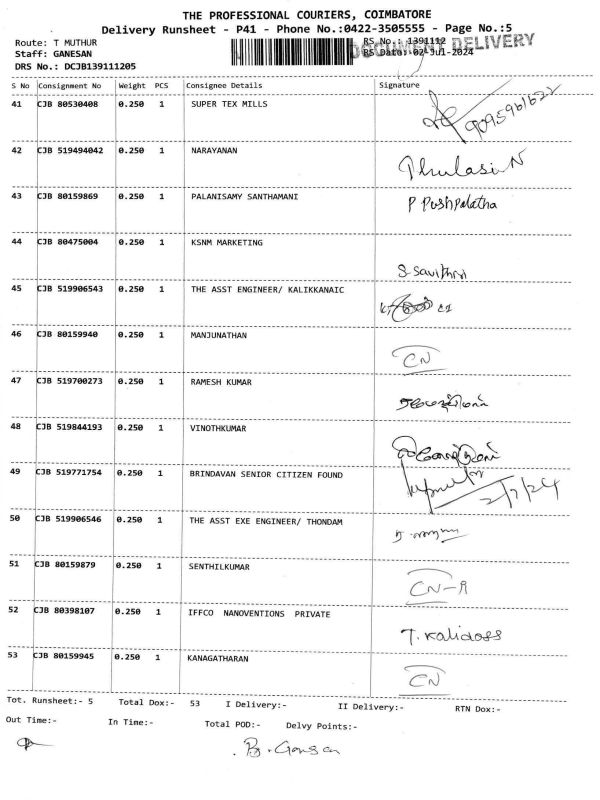 THE PROFESSIONAL COURIERS, COIMBATORE
Delivery Runsheet - P41 - Phone No.:0422-3505555 - Page No.:5
Route: T MUTHUR RS No.: 1391112
DOCUMENT DELIVERY
Staff: GANESAN RS Date: 02-Jul-2024
DRS No.: DCJB139111205
S No Consignment No Weight PCS Consignee Details Signature
41 CJB 80530408 0.250 1 SUPER TEX MILLS
42 CJB 519494042 0.250 1 NARAYANAN Thulasi N
43 CJB 80159869 0.250 1 PALANISAMY SANTHAMANI P Pushpalatha
44 CJB 80475004 0.250 1 KSNM MARKETING S Savithri
45 CJB 519906543 0.250 1 THE ASST ENGINEER/ KALIKKANAIC
46 CJB 80159940 0.250 1 MANJUNATHAN CN
47 CJB 519700273 0.250 1 RAMESH KUMAR
48 CJB 519844193 0.250 1 VINOTHKUMAR
49 CJB 519771754 0.250 1 BRINDAVAN SENIOR CITIZEN FOUND 2/7/24
50 CJB 519906546 0.250 1 THE ASST EXE ENGINEER/ THONDAM
51 CJB 80159879 0.250 1 SENTHILKUMAR CN-A
52 CJB 80398107 0.250 1 IFFCO NANOVENTIONS PRIVATE T. Kalidoss
53 CJB 80159945 0.250 1 KANAGATHARAN CN
Tot. Runsheet:- 5 Total Dox:- 53 I Delivery:- II Delivery:- RTN Dox:-
Out Time:- In Time:- Total POD:- Delvy Points:-